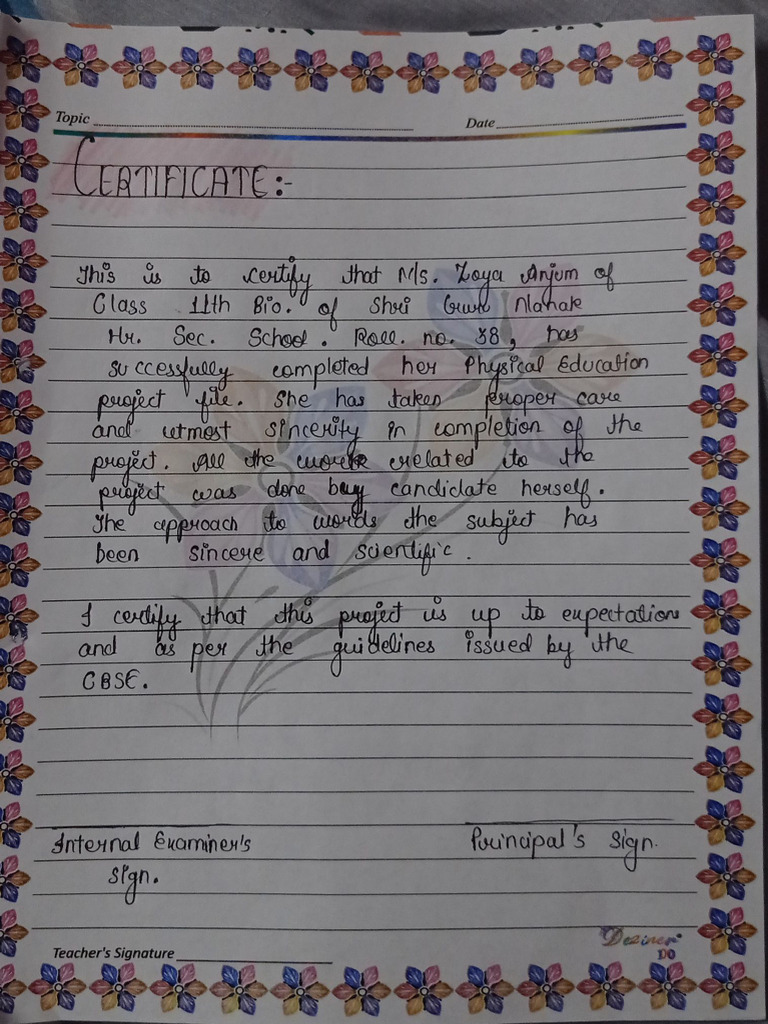 Topic
Date
CERTIFICATE:-
This is to certify that M/s. Zoya Anjum of
Class 11th Bio. of Shri Guru Nanak
Hr. Sec. School. Roll. no. 38, has
successfully completed her Physical Education
project file. She has taken proper care
and utmost sincerity in completion of the
project. All the work related to the
project was done by candidate herself.
The approach to words the subject has
been sincere and scientific.
I certify that this project is up to expectations
and as per the guidelines issued by the
CBSE.
Internal Examiner's
Sign.
Principal's Sign.
Teacher's Signature
Deziner
DO